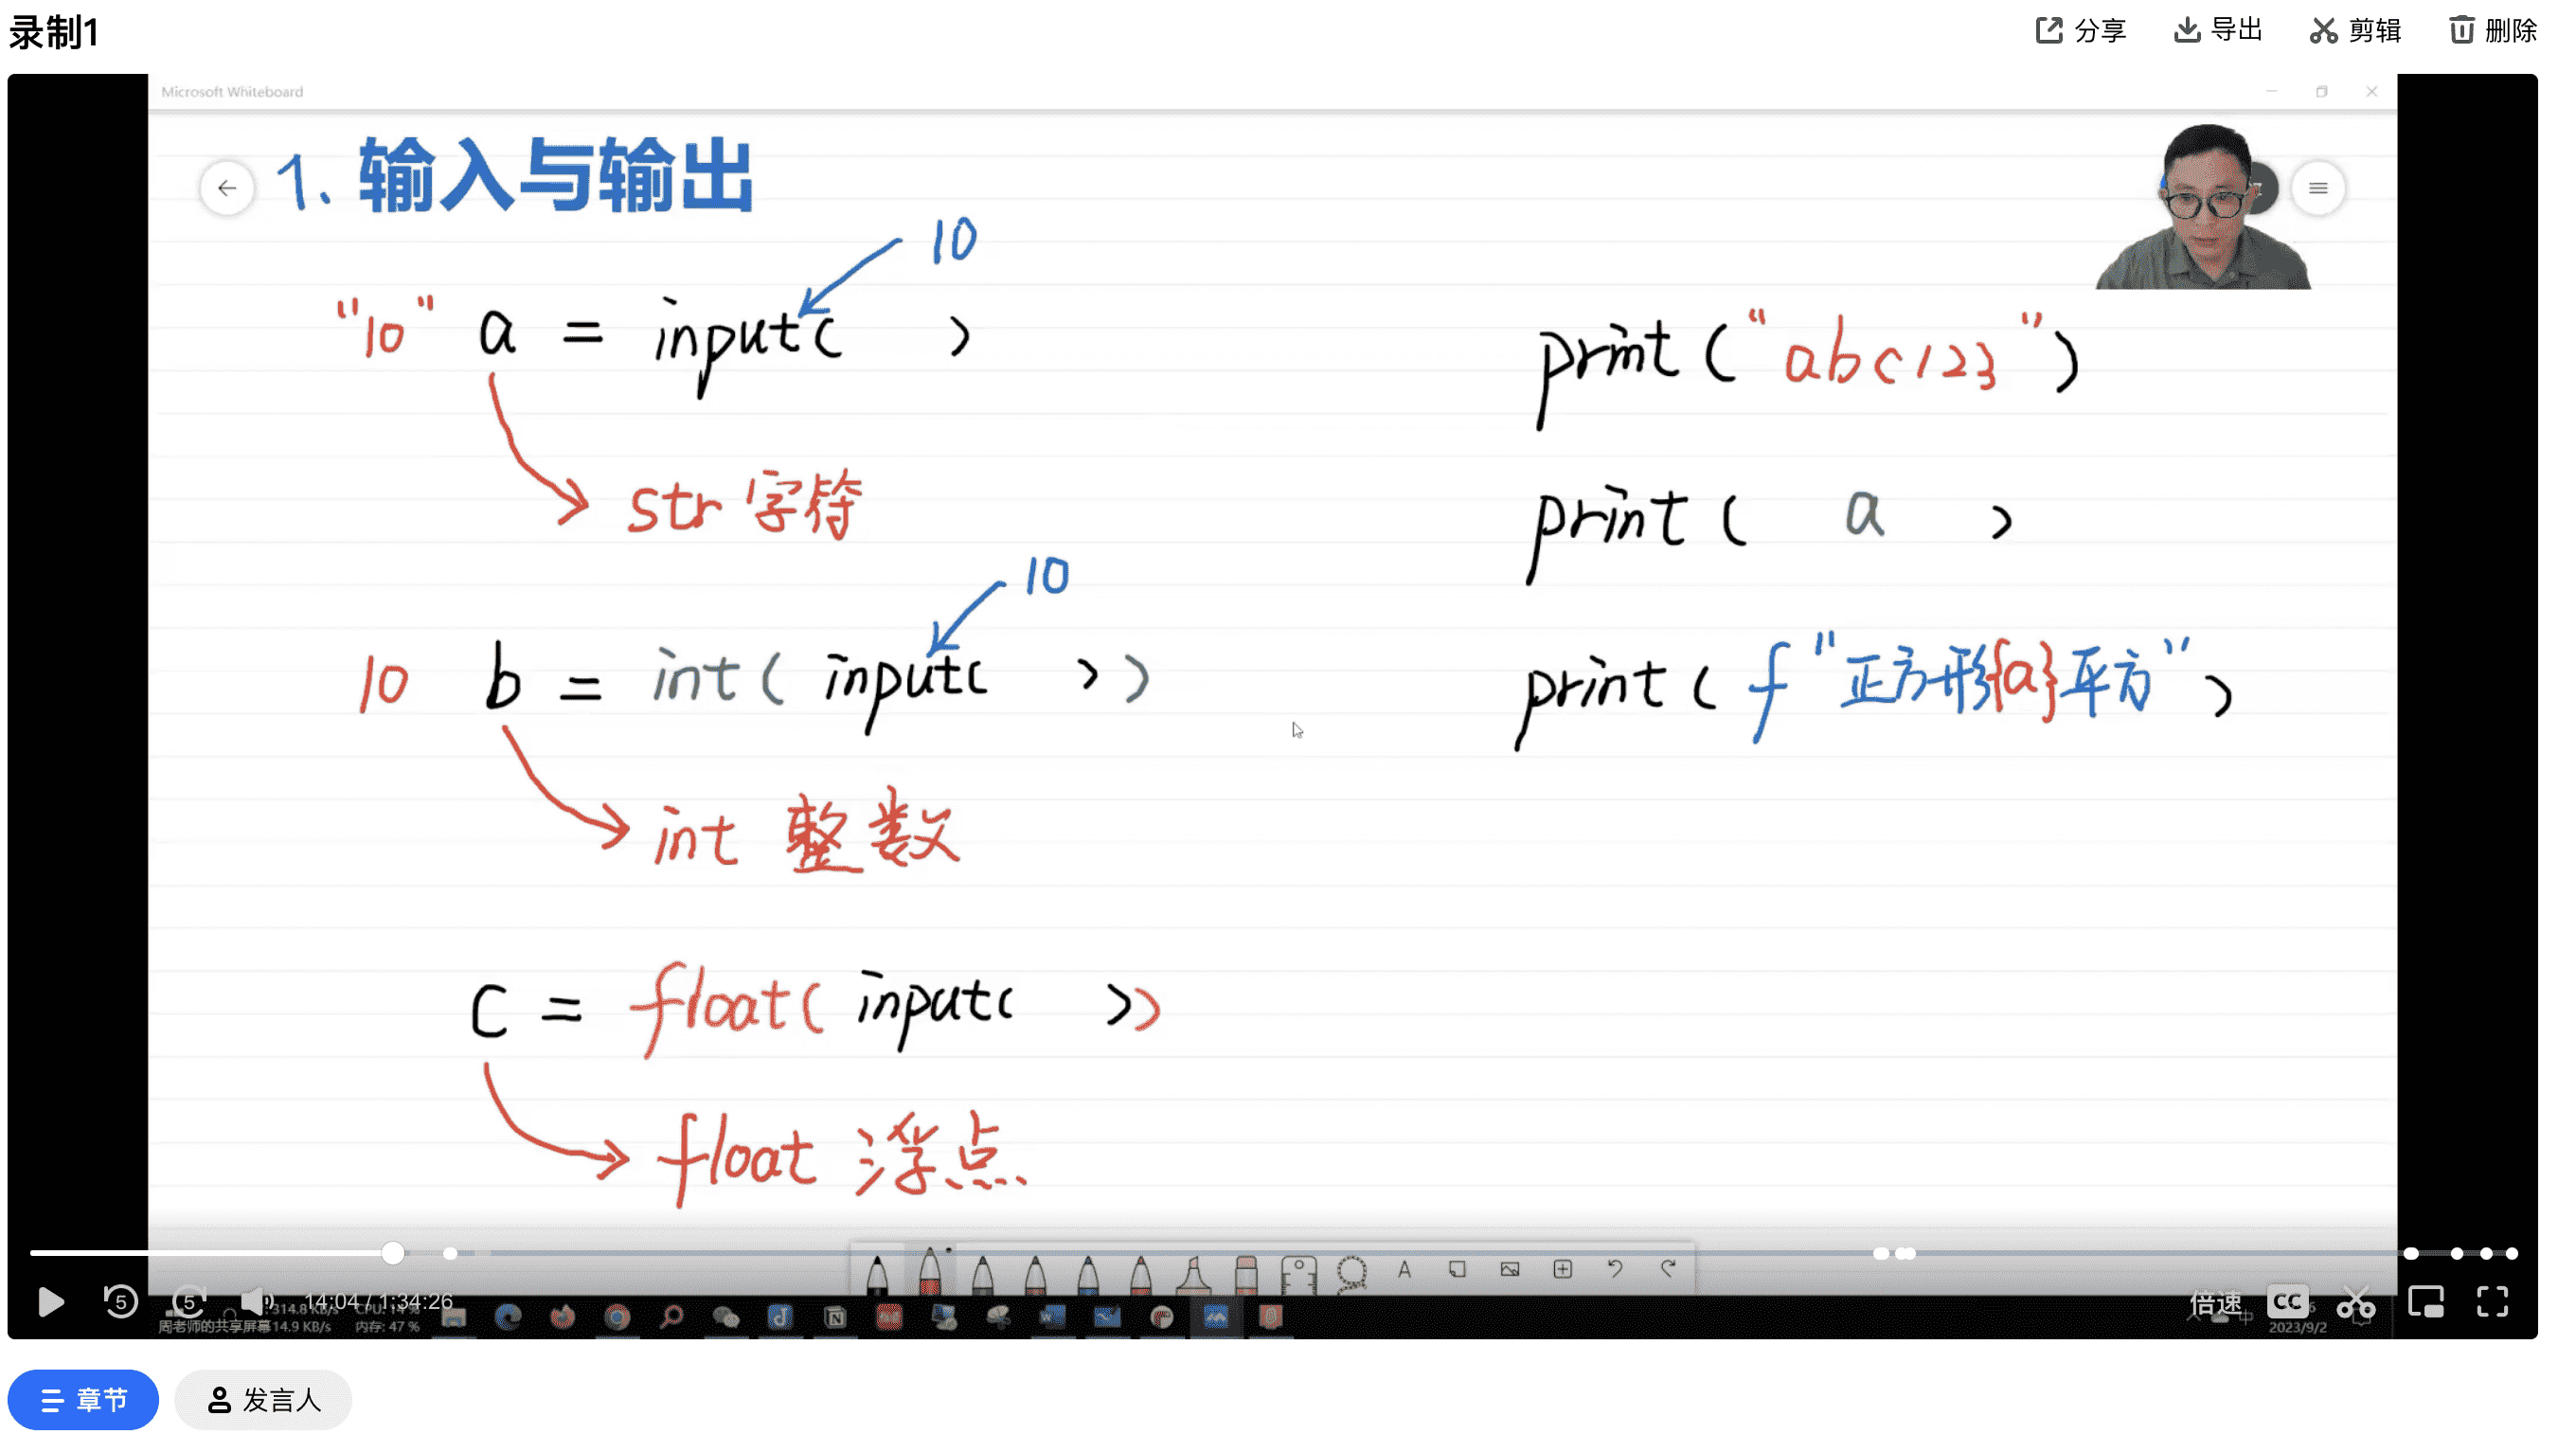 录制1
分享 导出 剪辑 删除
Microsoft Whiteboard
1. 输入与输出
10
"10" a = input( )
str 字符
10
10 b = int( input( ) )
int 整数
c = float( input( ) )
float 浮点
print("abc123")
print( a )
print( f"正方形{a}平方" )
5 5 14:04 / 1:34:26
倍速 CC
314.8 KB/s CPU: 14 %
周老师的共享屏幕 14.9 KB/s 内存: 47 %
中
2023/9/2
章节 发言人